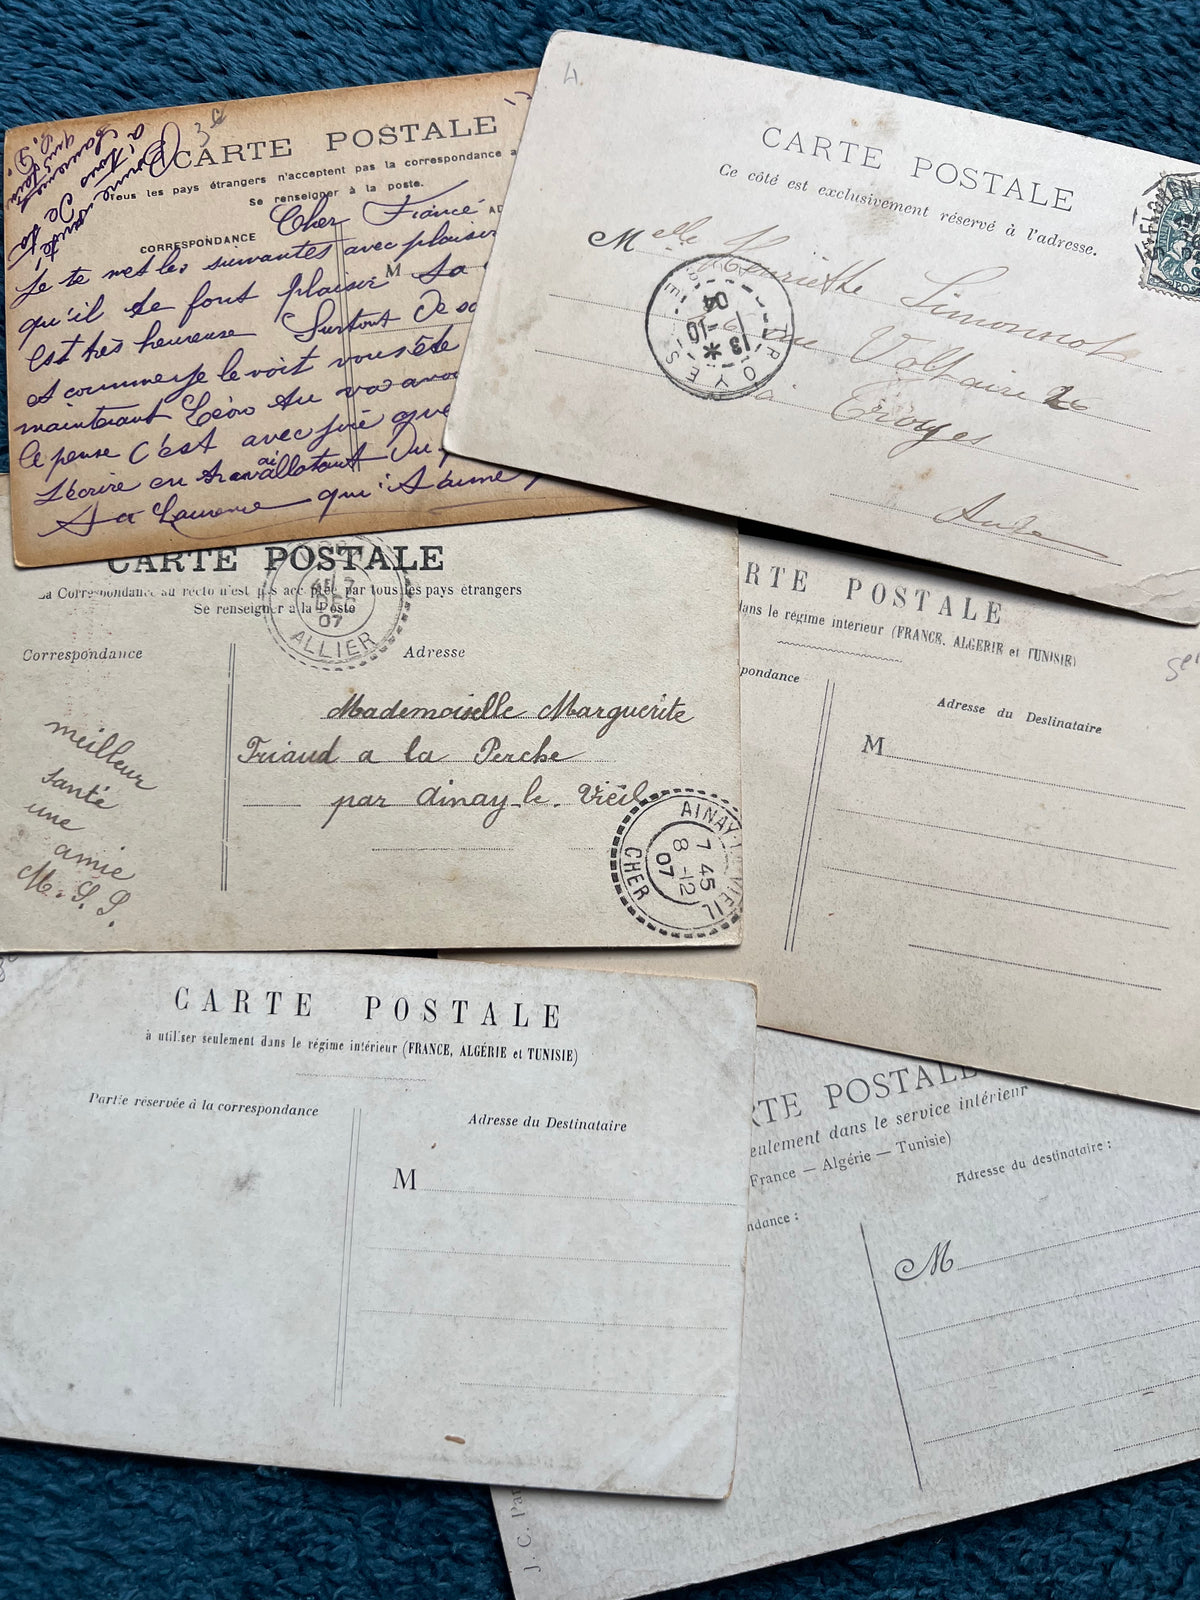 CARTE POSTALE
Tous les pays étrangers n'acceptent pas la correspondance a
Se renseigner à la poste.
CORRESPONDANCE
AD
M
Cher Fiancé
Je te met les suivantes avec plaisir
qu'il te font plaisir Sa
est très heureuse Surtout De
et commence le voit vous
maintenant Léon tu va
Ce pense c'est avec joie que
t'écrire en travaillotant Du
ai
Ta Laurence qui t'aime
4.
CARTE POSTALE
Ce côté est exclusivement réservé à l'adresse.
Melle Henriette Simonnot
rue Voltaire 26
à Troyes
Aube
TROYES
AUBE
13 -10
04
POSTES
CARTE POSTALE
La Correspondance au recto n'est pas acceptée par tous les pays étrangers
Se renseigner à la Poste
Correspondance
Adresse
7
DEC
07
ALLIER
meilleur
santé
une
amie
M. S. S.
Mademoiselle Marguerite
Friaud a la Perche
par Ainay-le-Vieil
AINAY-LE-VIEIL
7 45
8 -12
07
CHER
RTE POSTALE
dans le régime intérieur (FRANCE, ALGÉRIE et TUNISIE)
pondance
Adresse du Destinataire
M
CARTE POSTALE
à utiliser seulement dans le régime intérieur (FRANCE, ALGÉRIE et TUNISIE)
Partie réservée à la correspondance
Adresse du Destinataire
M
RTE POSTALE
eulement dans le service intérieur
France — Algérie — Tunisie)
ndance :
Adresse du destinataire :
M
J. C. Pa